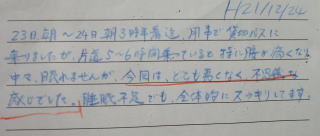 H21/12/24
23日、朝〜24日朝3時着迄、用事で貸切バスに
乗りましたが、片道5〜6時間乗っていると特に腰が痛くなる
中で、眠れませんが、今回は、とても痛くなく、不思議な
感じでした。睡眠不足でも、全体的にスッキリしてます。